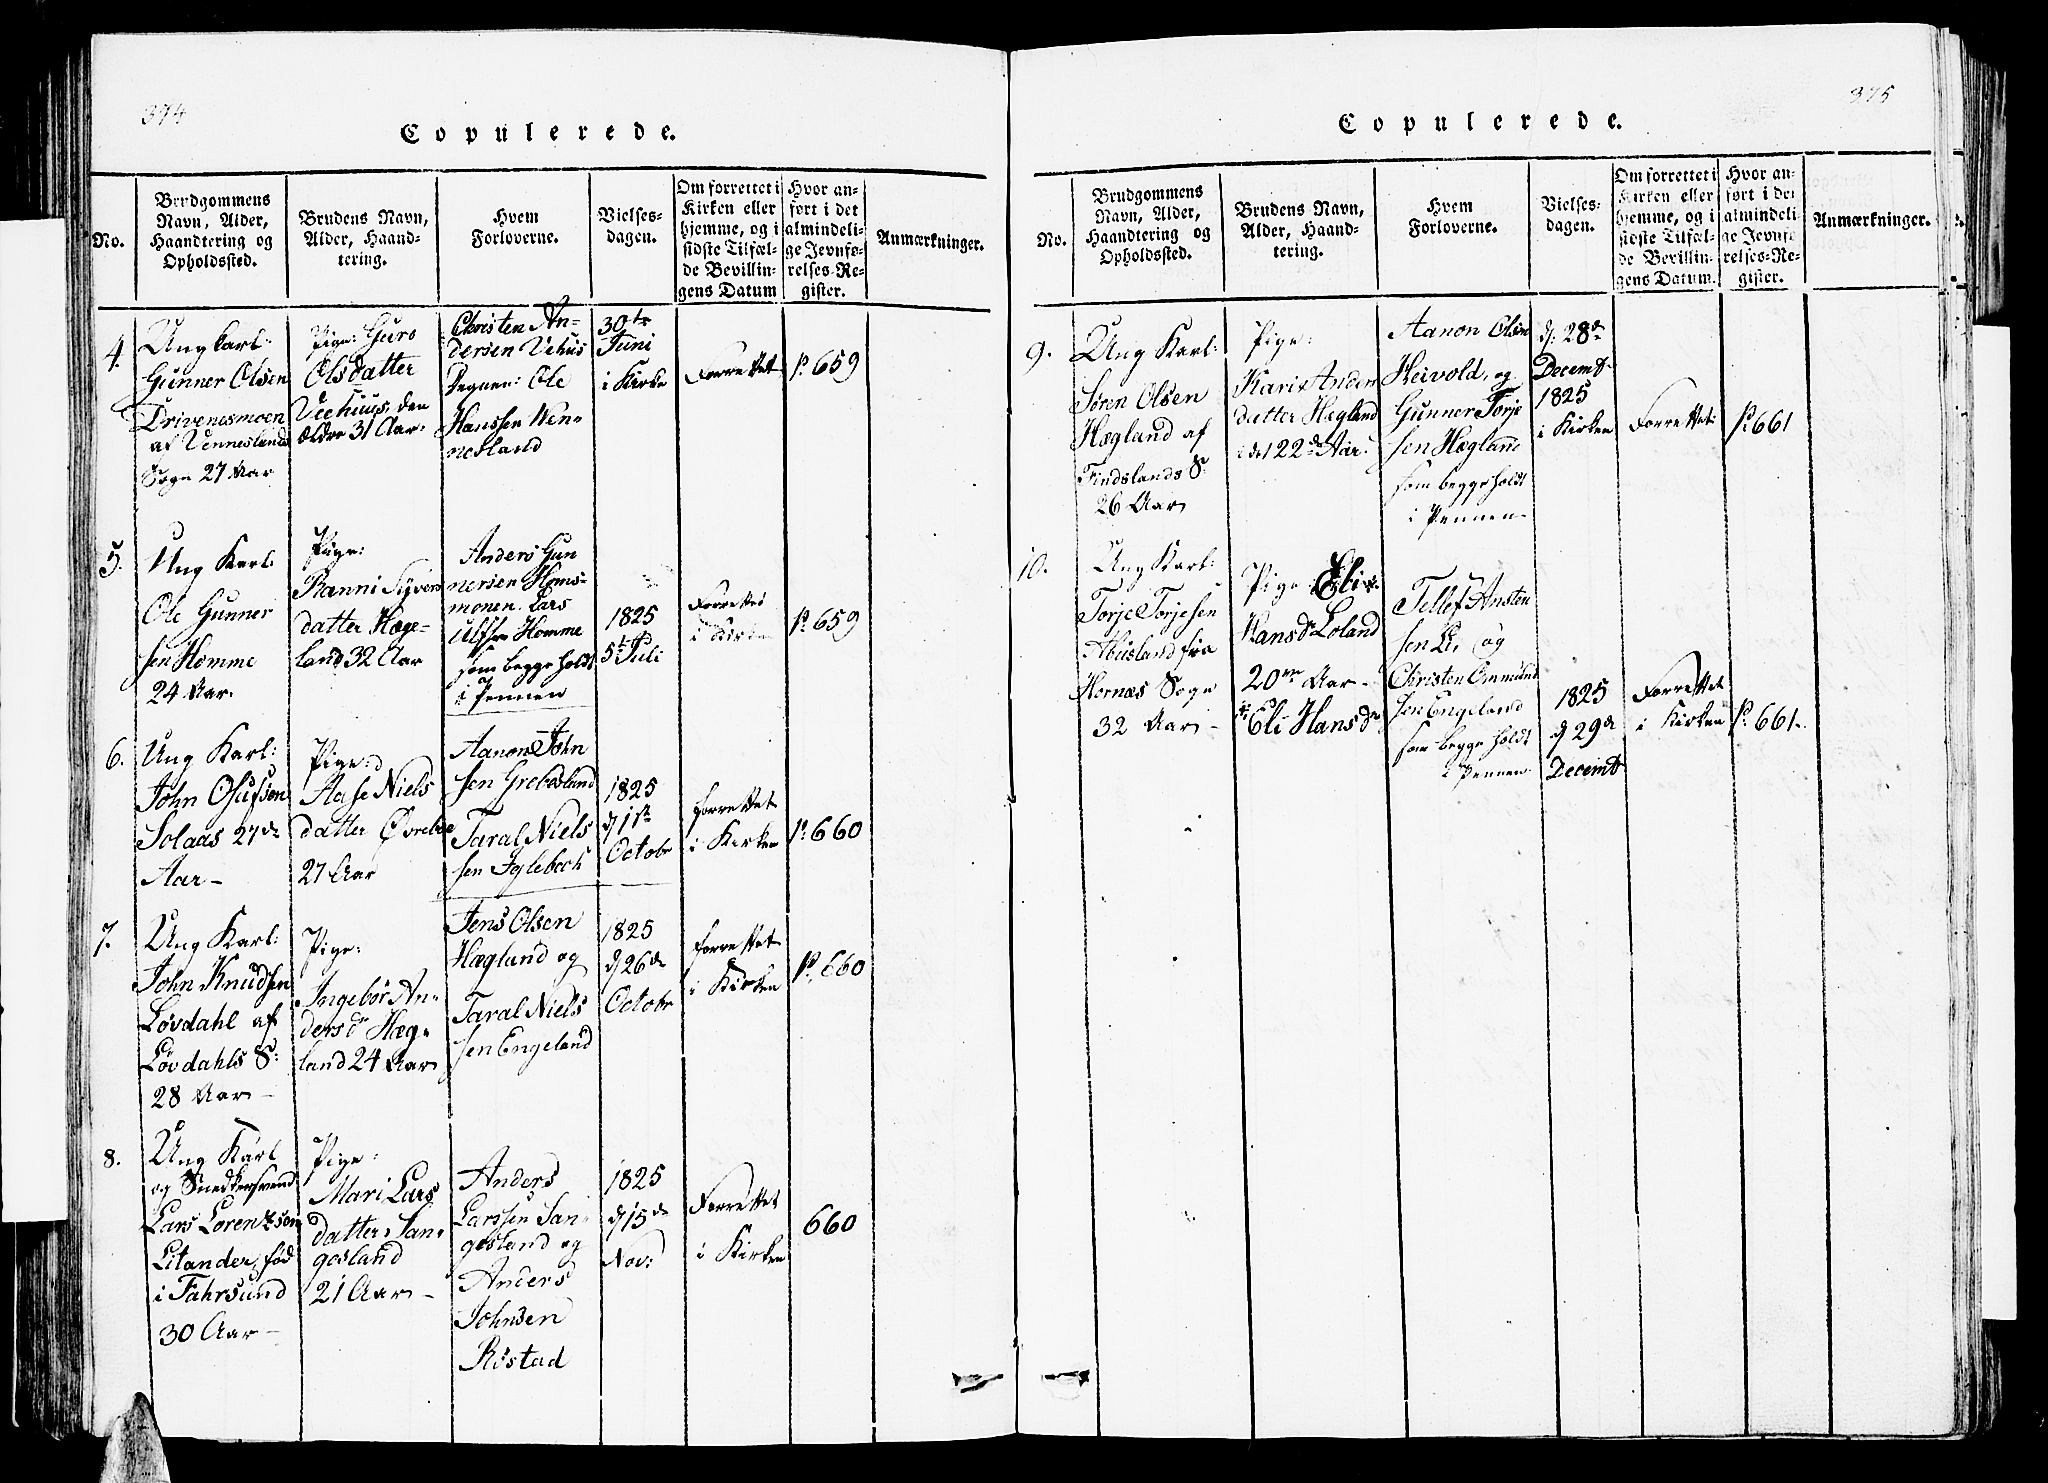 374
Copulerede.
No.
Brudgommens
Navn, Alder,
Haandtering og
Opholdssted.
Brudens Navn,
Alder, Haand-
tering.
Hvem
Forloverne.
Vielses-
dagen.
Om forrettet i
Kirken eller
hjemme, og i
sidste Tilfæl-
de Bevillin-
gens Datum
Hvor an-
ført i det
almindeli-
ge Jevnfø-
relses-Re-
gister.
Anmærkninger.
4.
Ung karl:
Gunner Olsen
Drivenesmoen
af Venneslands
Sogn 27 Aar
Pige: Guro
Olsdatter
Veehuus, den
ældre 31 Aar.
Christen An-
dersen Vehus
Degnen: Ole
Hanssen Wen-
nesland
30te
Juni
i Kirke
Forrettet
P. 659
5.
Ung Karl
Ole Gunner
sen Homme
24 Aar.
Pige:
Ranni Syvers
datter Hæge-
land 32 Aar
Anders Gun
nersen Homs-
monen. Lars
Ulfsen Homme
som begge holdt
i Pennen
1825
5te Juli
Forrettet
i Kirken
P. 659
6.
Ung Karl:
John Olufsen
Solaas 27de
Aar -
Pige:
Aase Niels
datter Øvrebøe
27 Aar
Aanon John
sen Grebesland
Taral Niels
sen Fglebech
1825
d 1ste
Octobr
forrettet
i Kirken
P. 660
7.
Ung Karl:
John Knudsen
Løvdahl af
Løvdahls S:
28 Aar -
Pige:
Ingebor An-
dersdr Hæg-
land 24 Aar
Jens Olsen
Hægland og
Taral Niels
sen Engeland
1825
d 26de
Octobr
forrettet
i Kirken
P. 660
8.
Ung Karl
og Snedkersvend
Lars Lorentzson
Litander, fød
i Fahrsund
30 Aar -
Pige:
Mari Lars
datter San-
gesland
21 Aar -
Anders
Larssen San-
gesland og
Anders
Johnsen
Røstad
1825
d 15de
Nov:
Forrettet
i Kirken
660
375
Copulerede.
No.
Brudgommens
Navn, Alder,
Haandtering og
Opholdssted.
Brudens Navn,
Alder, Haand-
tering.
Hvem
Forloverne.
Vielses-
dagen.
Om forrettet i
Kirken eller
hjemme, og i
sidste Tilfæl-
de Bevillin-
gens Datum.
Hvor an-
ført i det
almindeli-
ge Jevnfø-
relses-Re-
gister.
Anmærkninger.
9.
Ung Karl:
Søren Olsen
Hægland af
Findslands S:
26 Aar
Pige:
Kari Anders
datter Hægland
i det 22de Aar.
Aanon Olsen
Heivold, og
Gunner Torje
sen Hægland
som begge holdt
i Pennen
d: 28de
Decembr
1825
i Kirken
Forrettet
P. 661
10.
Ung Karl:
Torje Torjesen
Abusland fra
Hornæs Sogn
32 Aar -
Pige: Eli
Hansdr Loland
20 Aar -
Eli Hansdr
Tellef Ansten
sen Li, og
Christen Ommund
sen Engeland
som begge holdt
i Pennen
1825
d 29de
Decembr
Forrettet
i Kirken
P. 661.